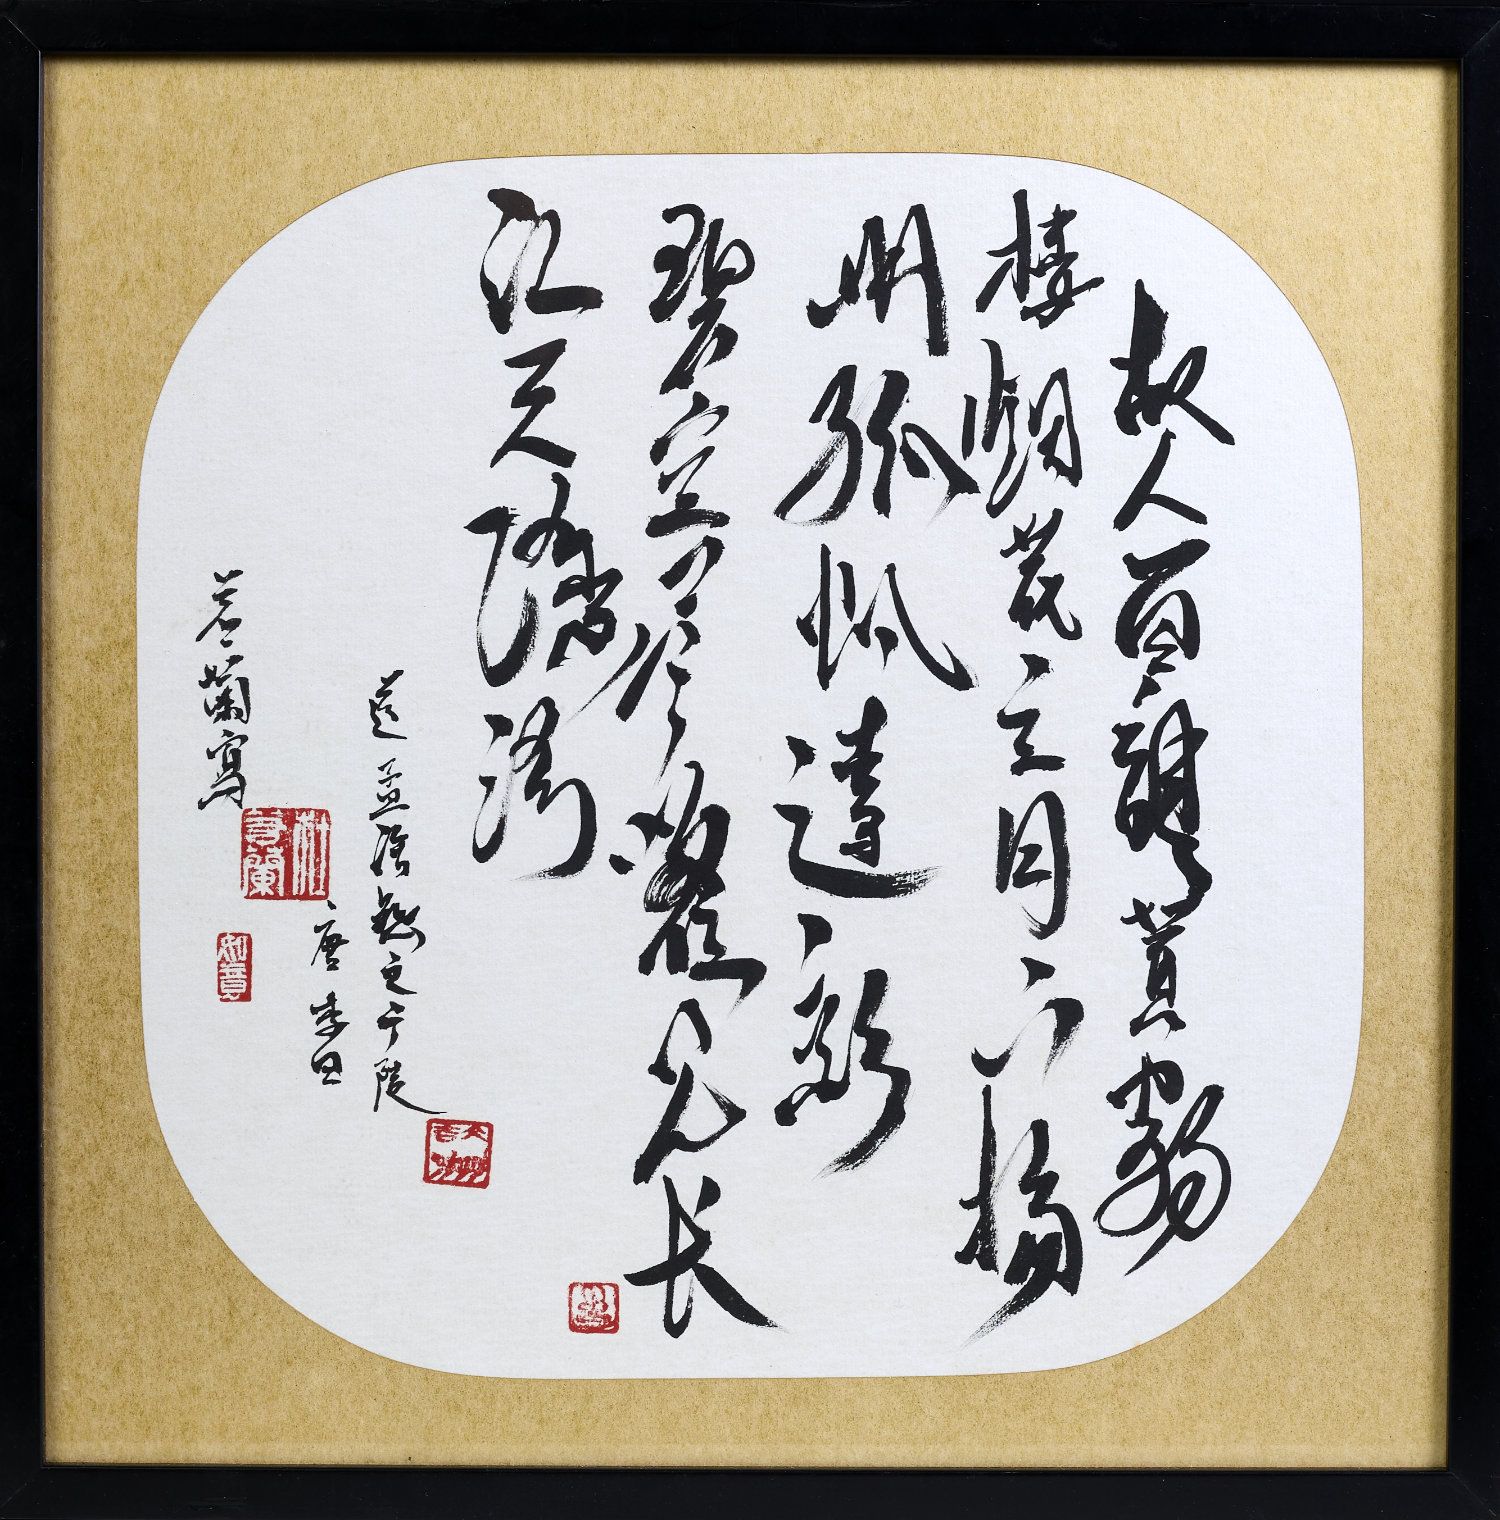 故人西辭黃鶴
樓烟花三月下揚
州孤帆遠影
碧空盡唯見长
江天際流
送孟浩然之广陵
唐李白
若蘭寫
杜若蘭
如意